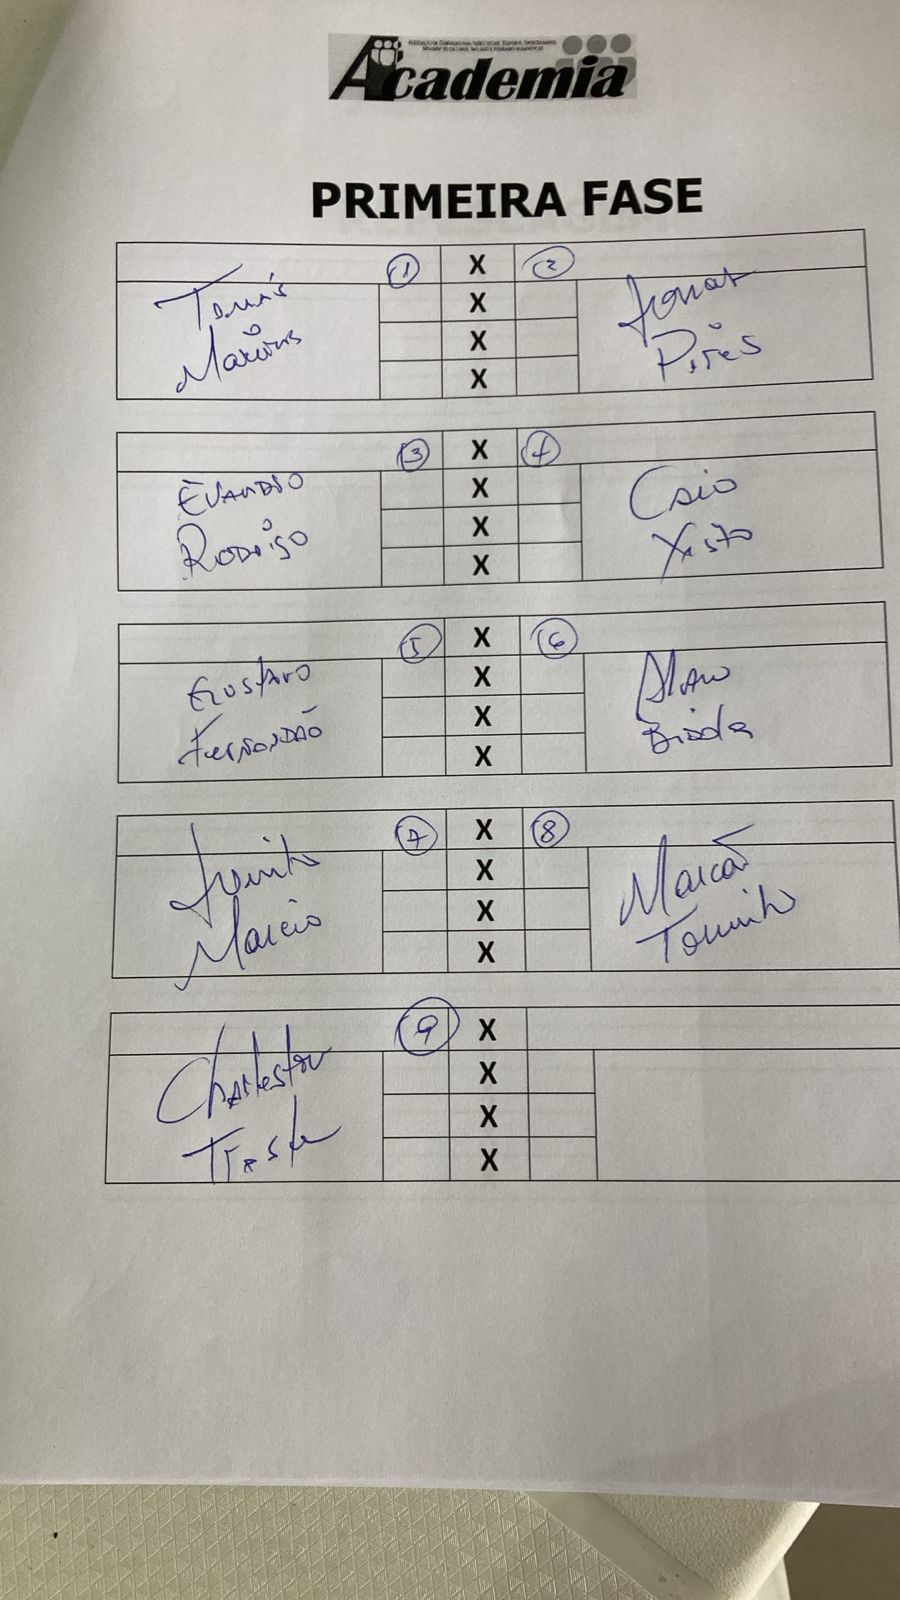 Academia
PRIMEIRA FASE
1 X 2
Tomás X
Marcius X Pires
X
3 X 4
Evandro X Caio
Rodrigo X Xisto
X
5 X 6
Gustavo X Alan
Fernandão X
X
7 X 8
Juninho X Marcão
Marcio X Toninho
X
9 X
Charleston X
X
X